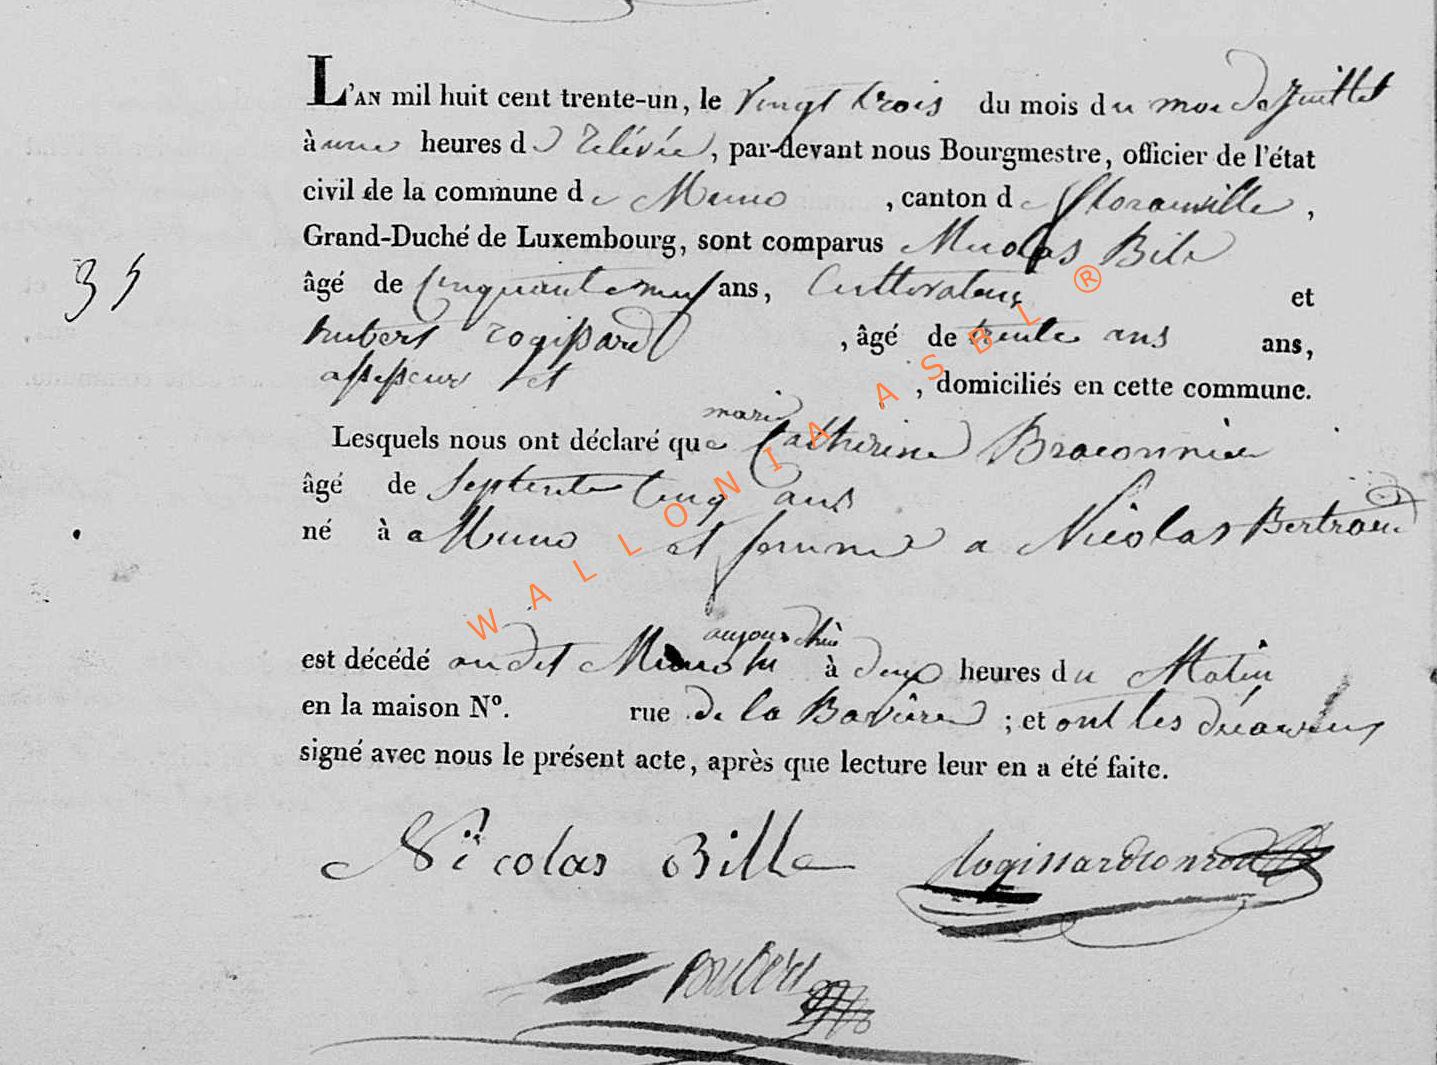 L'AN mil huit cent trente-un, le vingt trois du mois du moi de Juillet
à une heures de relevée, par-devant nous Bourgmestre, officier de l'état
civil de la commune de Muno, canton de florainville,
Grand-Duché de Luxembourg, sont comparus Nicolas Bile
35
âgé de Cinquante neuf ans, Cultivateur et
hubert rogissard, âgé de trente ans ans,
assesseur et, domiciliés en cette commune.
marie
Lesquels nous ont déclaré que Catherine Braconnier
âgé de septente cinq ans
né à a Muno et femme a Nicolas Bertrand
aujourdhui
est décédé audit Muno à deux heures du Matin
en la maison No. rue de la Bavière ; et ont les déclarans
signé avec nous le présent acte, après que lecture leur en a été faite.
Nicolas Bille rogissard
WALLONIA ASBL ®